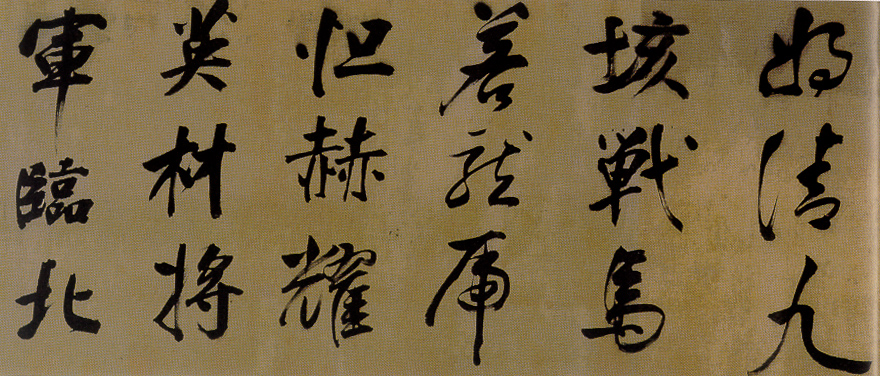 將清九
垓戰馬
若龍虎
怛赫耀
英材將
軍臨北